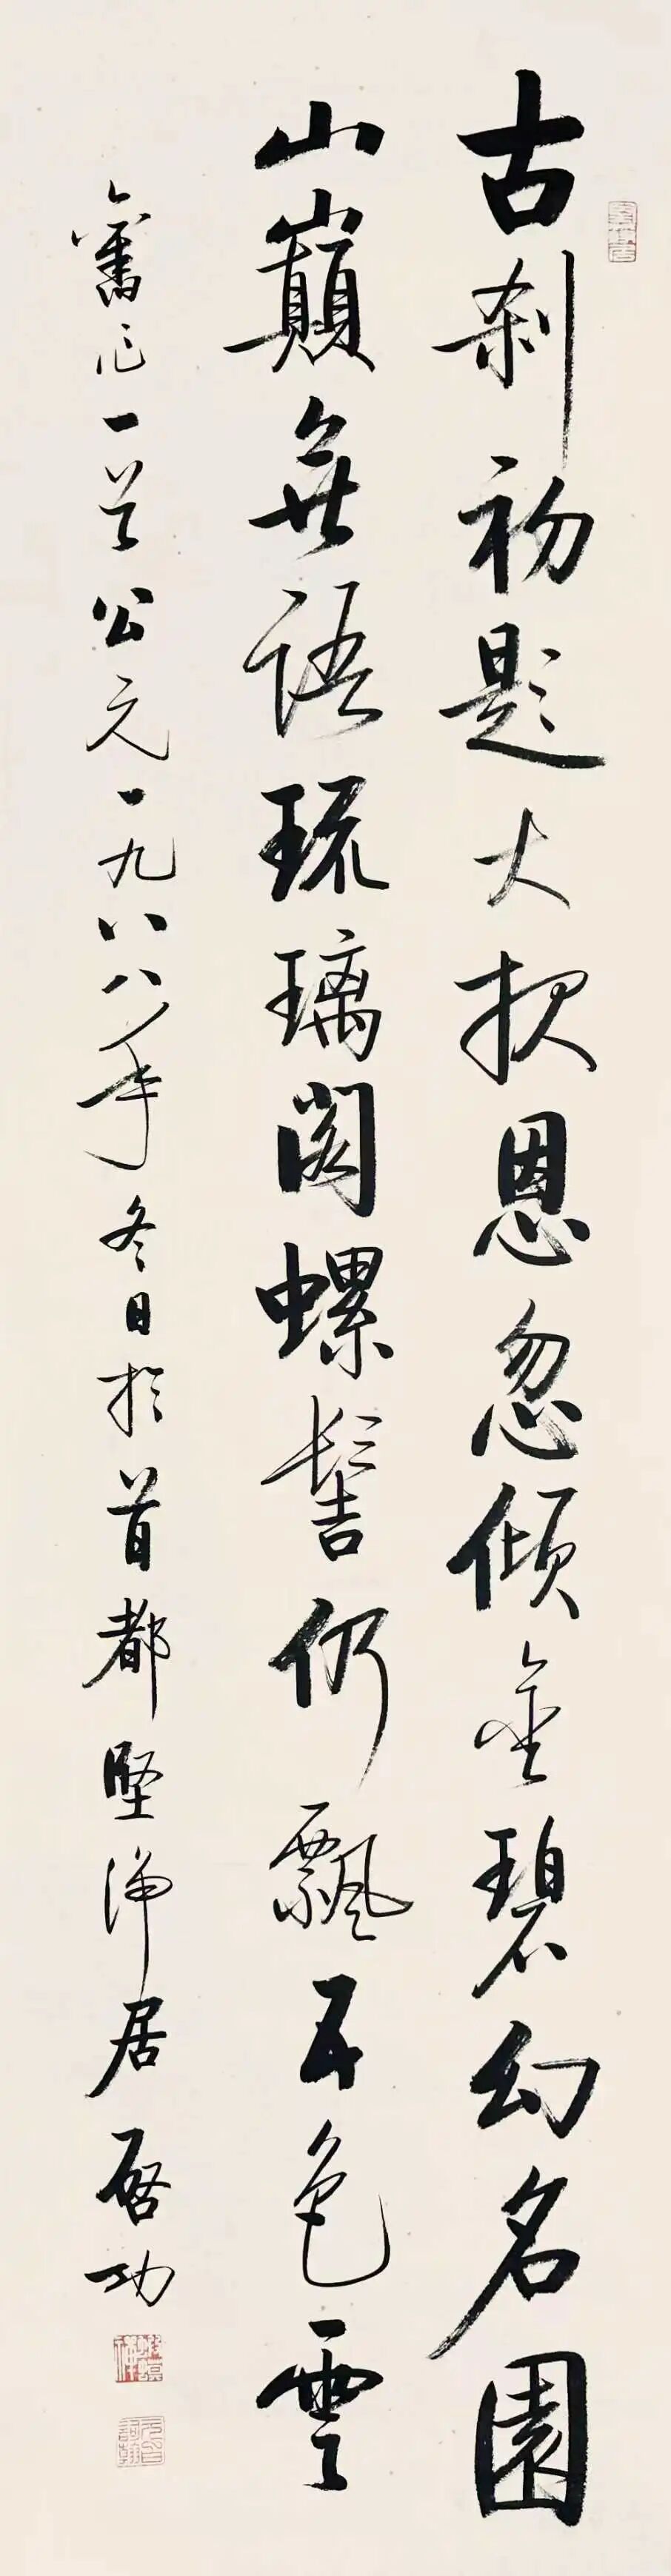 古刹初题大报恩忽倾金碧幻名園
山巔無語琉璃閣螺髻仍飄五色雲
舊作一首公元一九八八年冬日於首都堅淨居啟功